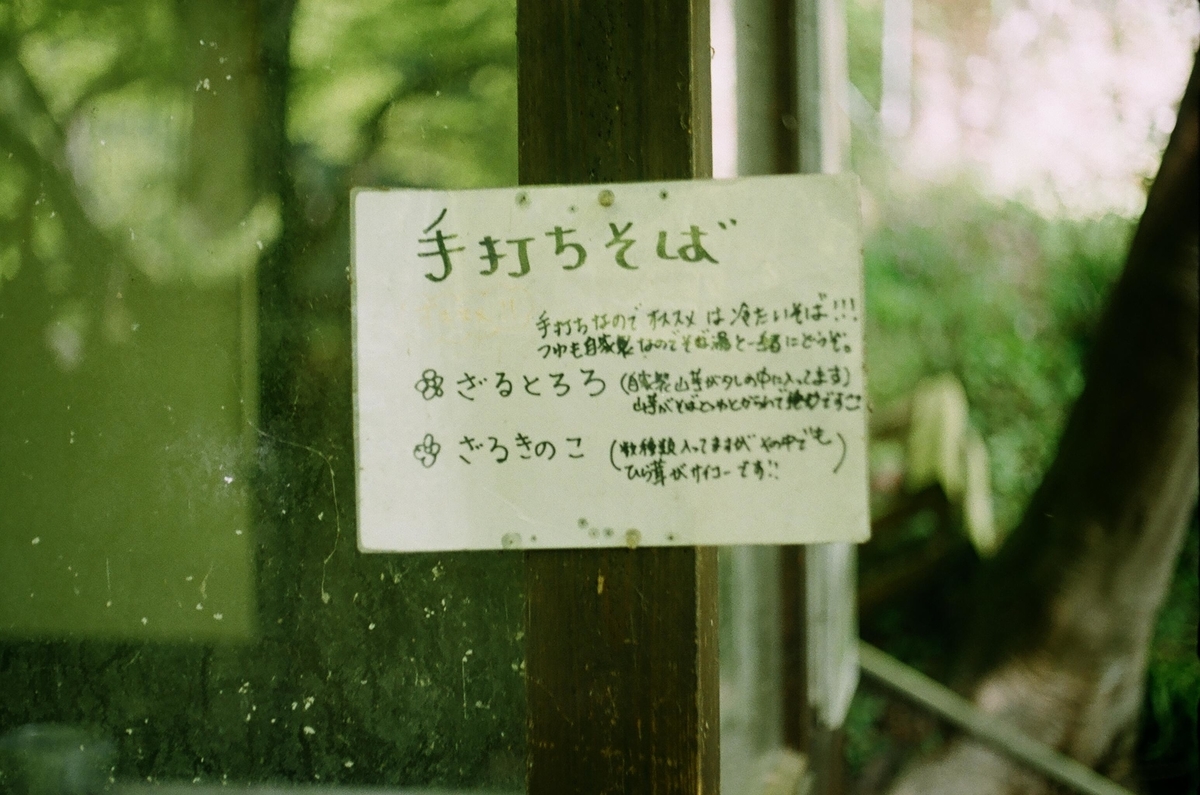 手打ちそば
手打ちなので オススメ は 冷たいそば!!!
つゆも自家製なのでそば湯と一緒にどうぞ。
ざるとろろ (自家製山芋がダシの中に入ってます)
山芋がそばとつゆとかられて絶妙です
ざるきのこ (数種類入ってますが その中でも)
ひら茸がサイコーです!!